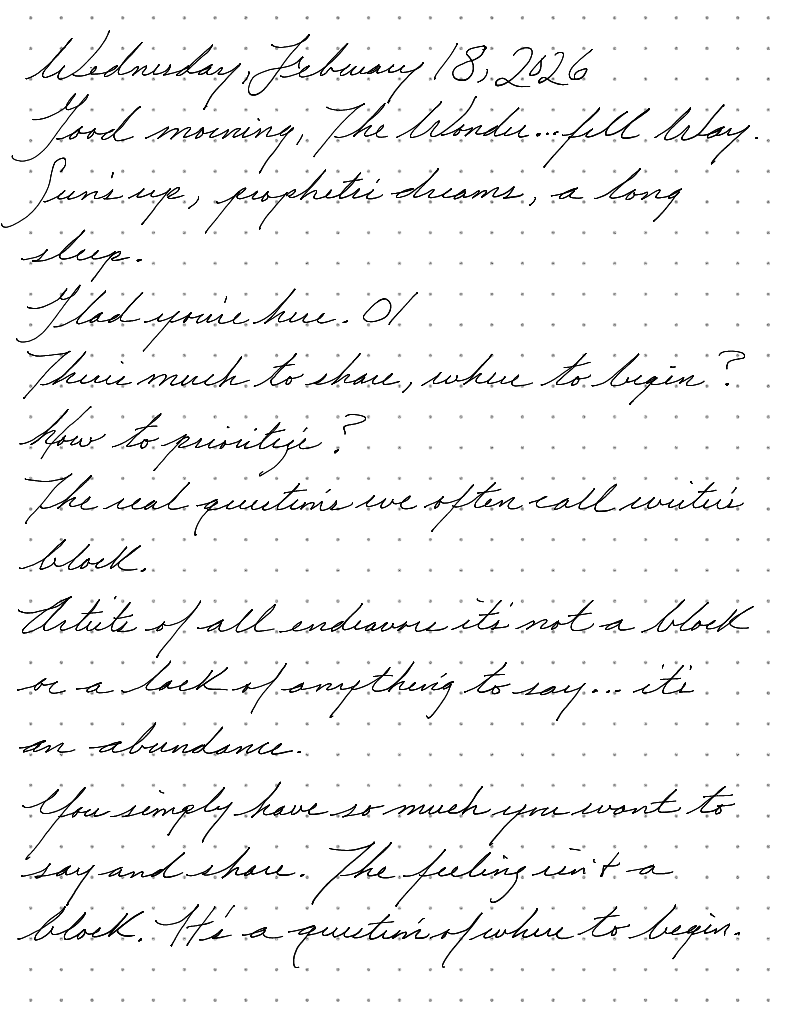 Wednesday, February 18, 2026
Good morning, The Wonder...full Way.
Sun's up, prophetic dreams, a long
sleep.
Glad you're here. 01
There's much to share, where to begin?
How to prioritize?
The real question's we often call writer's
block.
Artists of all endeavors it's not a block
or a lack of anything to say... it's
an abundance.
You simply have so much you want to
say and share. The feeling isn't a
block. It's a question of where to begin.